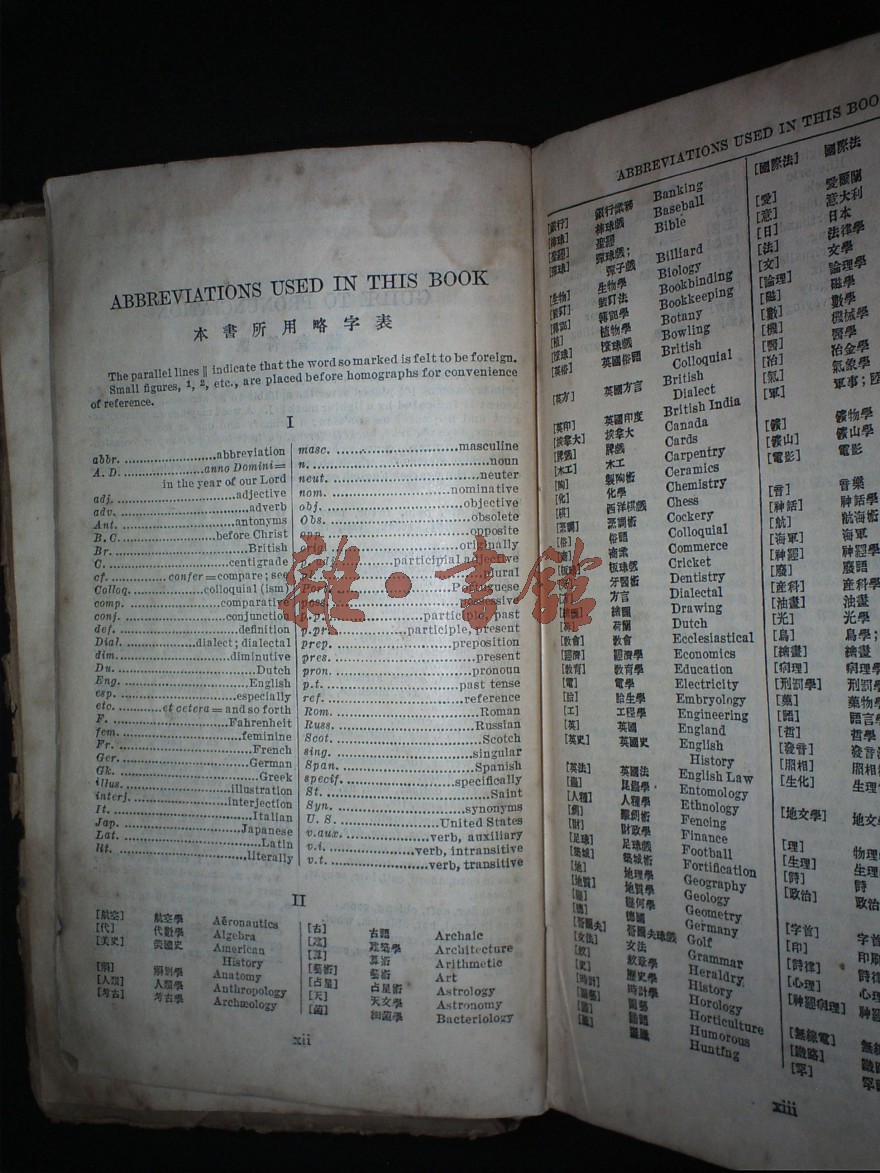 ABBREVIATIONS USED IN THIS BOOK
本書所用略字表
The parallel lines ‖ indicate that the word so marked is felt to be foreign.
Small figures, 1, 2, etc., are placed before homographs for convenience
of reference.
I
abbr. abbreviation
A. D. anno Domini=
in the year of our Lord
adj. adjective
adv. adverb
Ant. antonyms
B. C. before Christ
Br. British
C. centigrade
cf. confer=compare; see
Colloq. colloquial (ism)
comp. comparative
conj. conjunction
def. definition
Dial. dialect; dialectal
dim. diminutive
Du. Dutch
Eng. English
esp. especially
etc. et cetera=and so forth
F. Fahrenheit
fem. feminine
Fr. French
Ger. German
Gk. Greek
illus. illustration
interj. interjection
It. Italian
Jap. Japanese
Lat. Latin
lit. literally
masc. masculine
n. noun
neut. neuter
nom. nominative
obj. objective
Obs. obsolete
opposite
orig. originally
participial adjective
plural
Portuguese
possessive
p.p. participle, past
p.pr. participle, present
prep. preposition
pres. present
pron. pronoun
p.t. past tense
ref. reference
Rom. Roman
Russ. Russian
Scot. Scotch
sing. singular
Span. Spanish
specif. specifically
St. Saint
Syn. synonyms
U. S. United States
v.aux. verb, auxiliary
v.i. verb, intransitive
v.t. verb, transitive
II
[航空] 航空學 Aëronautics
[代] 代數學 Algebra
[美史] 美國史 American
History
[解] 解剖學 Anatomy
[人類] 人類學 Anthropology
[考古] 考古學 Archæology
[古] 古語 Archaic
[建] 建築學 Architecture
[算] 算術 Arithmetic
[藝術] 藝術 Art
[占星] 占星術 Astrology
[天] 天文學 Astronomy
[菌] 細菌學 Bacteriology
xii
雜·書館
ABBREVIATIONS USED IN THIS BOO
[銀行] 銀行業務 Banking
[棒球] 棒球戲 Baseball
[聖經] 聖經 Bible
[彈球] 彈球戲;
彈子戲 Billiard
[生物] 生物學 Biology
[裝釘] 裝釘法 Bookbinding
[簿記] 簿記學 Bookkeeping
[植] 植物學 Botany
[滾球] 滾球戲 Bowling
[英俗] 英國俗語 British
Colloquial
[英方] 英國方言 British
Dialect
[英印] 英國印度 British India
[坎拿大] 坎拿大 Canada
[牌戲] 牌戲 Cards
[木工] 木工 Carpentry
[陶] 製陶術 Ceramics
[化] 化學 Chemistry
[棋] 西洋棋戲 Chess
[烹調] 烹調術 Cockery
[俗] 俗語 Colloquial
商業 Commerce
板球戲 Cricket
牙醫學 Dentistry
方言 Dialectal
繪圖 Drawing
荷蘭 Dutch
[教會] 教會 Ecclesiastical
[經濟] 經濟學 Economics
[教育] 教育學 Education
[電] 電學 Electricity
[胎] 胎生學 Embryology
[工] 工程學 Engineering
[英] 英國 England
[英史] 英國史 English
History
[英法] 英國法 English Law
[昆] 昆蟲學 Entomology
[人種] 人種學 Ethnology
Fencing
[財] 財政學 Finance
[足球] 足球戲 Football
[築城] 築城術 Fortification
[地] 地理學 Geography
[地質] 地質學 Geology
[幾] 幾何學 Geometry
[德] 德國 Germany
Golf
[文法] 文法 Grammar
[紋] 紋章學 Heraldry
[史] 歷史學 History
[時計] 時計學 Horology
[園藝] 園藝 Horticulture
Humorous
Hunting
[國際法] 國際法
[愛] 愛爾蘭
[意] 意大利
[日] 日本
[法] 法律學
[文] 文學
[論理] 論理學
[磁] 磁學
[數] 數學
[機] 機械學
[醫] 醫學
[冶] 冶金學
[氣] 氣象學
[軍] 軍事; 陸
[礦] 礦物學
[礦山] 礦山學
[電影] 電影
[音] 音樂
[神話] 神話學
[航] 航海術
[海軍] 海軍
[神經] 神經學
[廢] 廢語
[產科] 產科學
[油畫] 油畫
[光] 光學
[鳥] 鳥學;
[繪畫] 繪畫
[病理] 病理學
[刑罰學] 刑罰學
[藥] 藥物學
[語] 語言學
[哲] 哲學
[發音] 發音
[照相] 照相
[生化] 生理
[地文學] 地文
[理] 物理
[生理] 生理
[詩] 詩
[政治] 政治
[字首] 字首
[印] 印刷
[詩律] 詩律
[心理] 心理
[神經病理] 神經
[無線電] 無線
[鐵路] 鐵路
[罕]
xiii